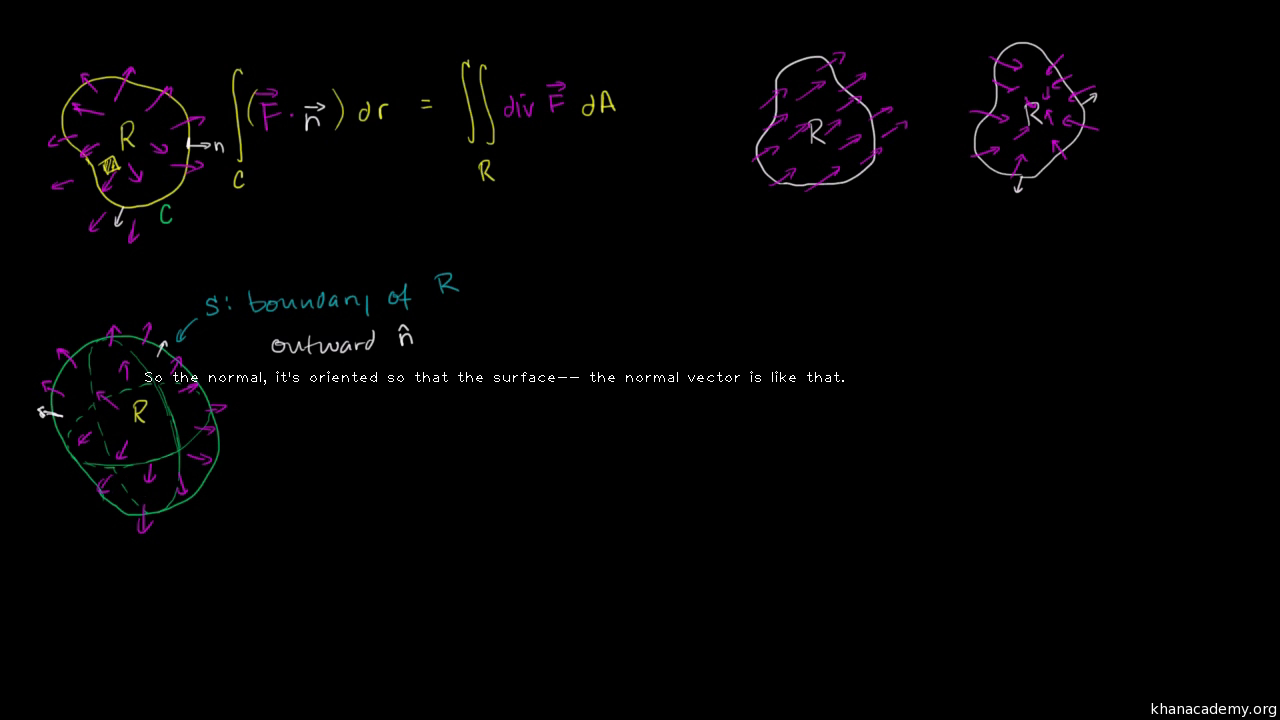 ∫_C (F⃗ · n⃗) dr = ∬_R div F⃗ dA
R
n
C
R
R
S: boundary of R
outward n̂
So the normal, it's oriented so that the surface-- the normal vector is like that.
R
khanacademy.org